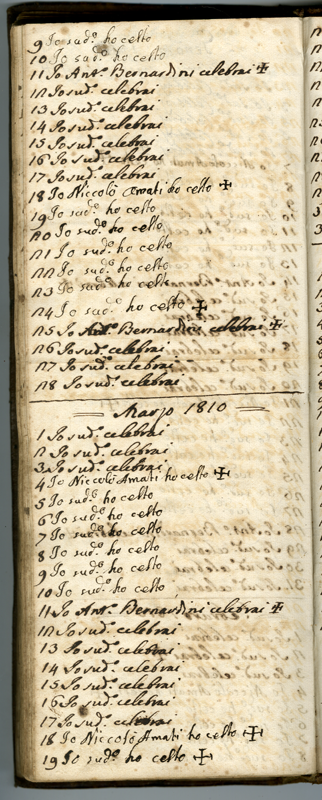 9 Io sud.º ho celto
10 Io sud.º ho celto
11 Io Ant.º Bernardini celebrai ✠
12 Io sud.º celebrai
13 Io sud.º celebrai
14 Io sud.º celebrai
15 Io sud.º celebrai
16 Io sud.º celebrai
17 Io sud.º celebrai
18 Io Niccolò Amati ho celto ✠
19 Io sud.º ho celto
20 Io sud.º ho celto
21 Io sud.º ho celto
22 Io sud.º ho celto
23 Io sud.º ho celto
24 Io sud.º ho celto ✠
25 Io Ant.º Bernardini celebrai ✠
26 Io sud.º celebrai
27 Io sud.º celebrai
28 Io sud.º celebrai
Marzo 1810
1 Io sud.º celebrai
2 Io sud.º celebrai
3 Io sud.º celebrai
4 Io Niccolò Amati ho celto ✠
5 Io sud.º ho celto
6 Io sud.º ho celto
7 Io sud.º ho celto
8 Io sud.º ho celto
9 Io sud.º ho celto
10 Io sud.º ho celto
11 Io Ant.º Bernardini celebrai ✠
12 Io sud.º celebrai
13 Io sud.º celebrai
14 Io sud.º celebrai
15 Io sud.º celebrai
16 Io sud.º celebrai
17 Io sud.º celebrai
18 Io Niccolò Amati ho celto ✠
19 Io sud.º ho celto ✠